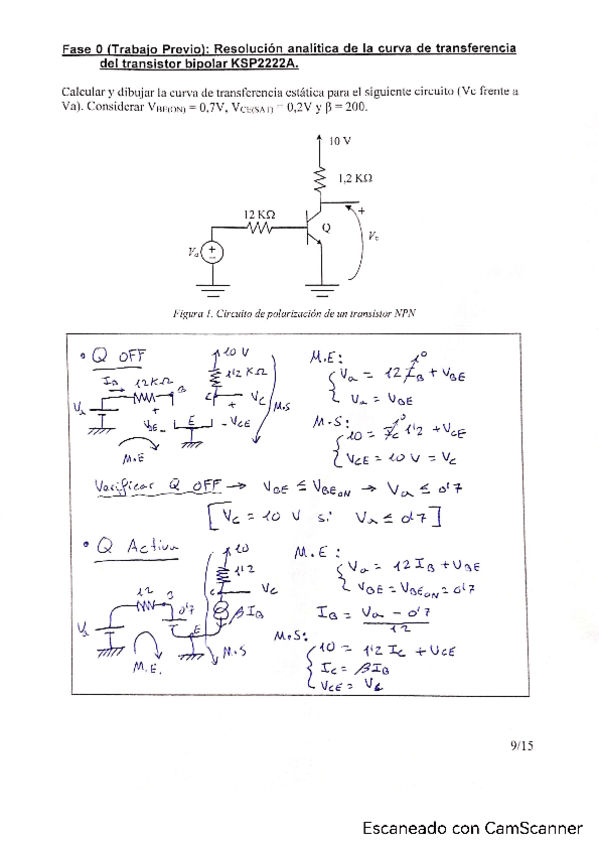 Fase 0 (Trabajo Previo): Resolución analítica de la curva de transferencia
del transistor bipolar KSP2222A.
Calcular y dibujar la curva de transferencia estática para el siguiente circuito (Vc frente a
Va). Considerar VBE(ON) = 0,7V, VCE(SAT) = 0,2V y β = 200.
10 V
1,2 KΩ
12 KΩ
Q
+
Vc
Va
+
Figura 1. Circuito de polarización de un transistor NPN
• Q OFF
10 V
1'2 KΩ
IB 12KΩ
B
C
Vc
Va
+
VBE
E
VCE
M.S
M.E
M.E:
Va = 12 IB + VBE
0
Va = VBE
M.S:
10 = Ic 1'2 + VCE
0
VCE = 10 V = Vc
Verificar Q OFF → VBE ≤ VBEON → Va ≤ 0'7
[Vc = 10 V si Va ≤ 0'7]
• Q Activa
10
1'2
C
Vc
12
B
0'7
βIB
Va
E
M.E.
M.S
M.E:
Va = 12 IB + VBE
VBE = VBEON = 0'7
IB = Va - 0'7
12
M.S:
10 = 1'2 Ic + VCE
Ic = βIB
VCE = Vc
9/15
Escaneado con CamScanner